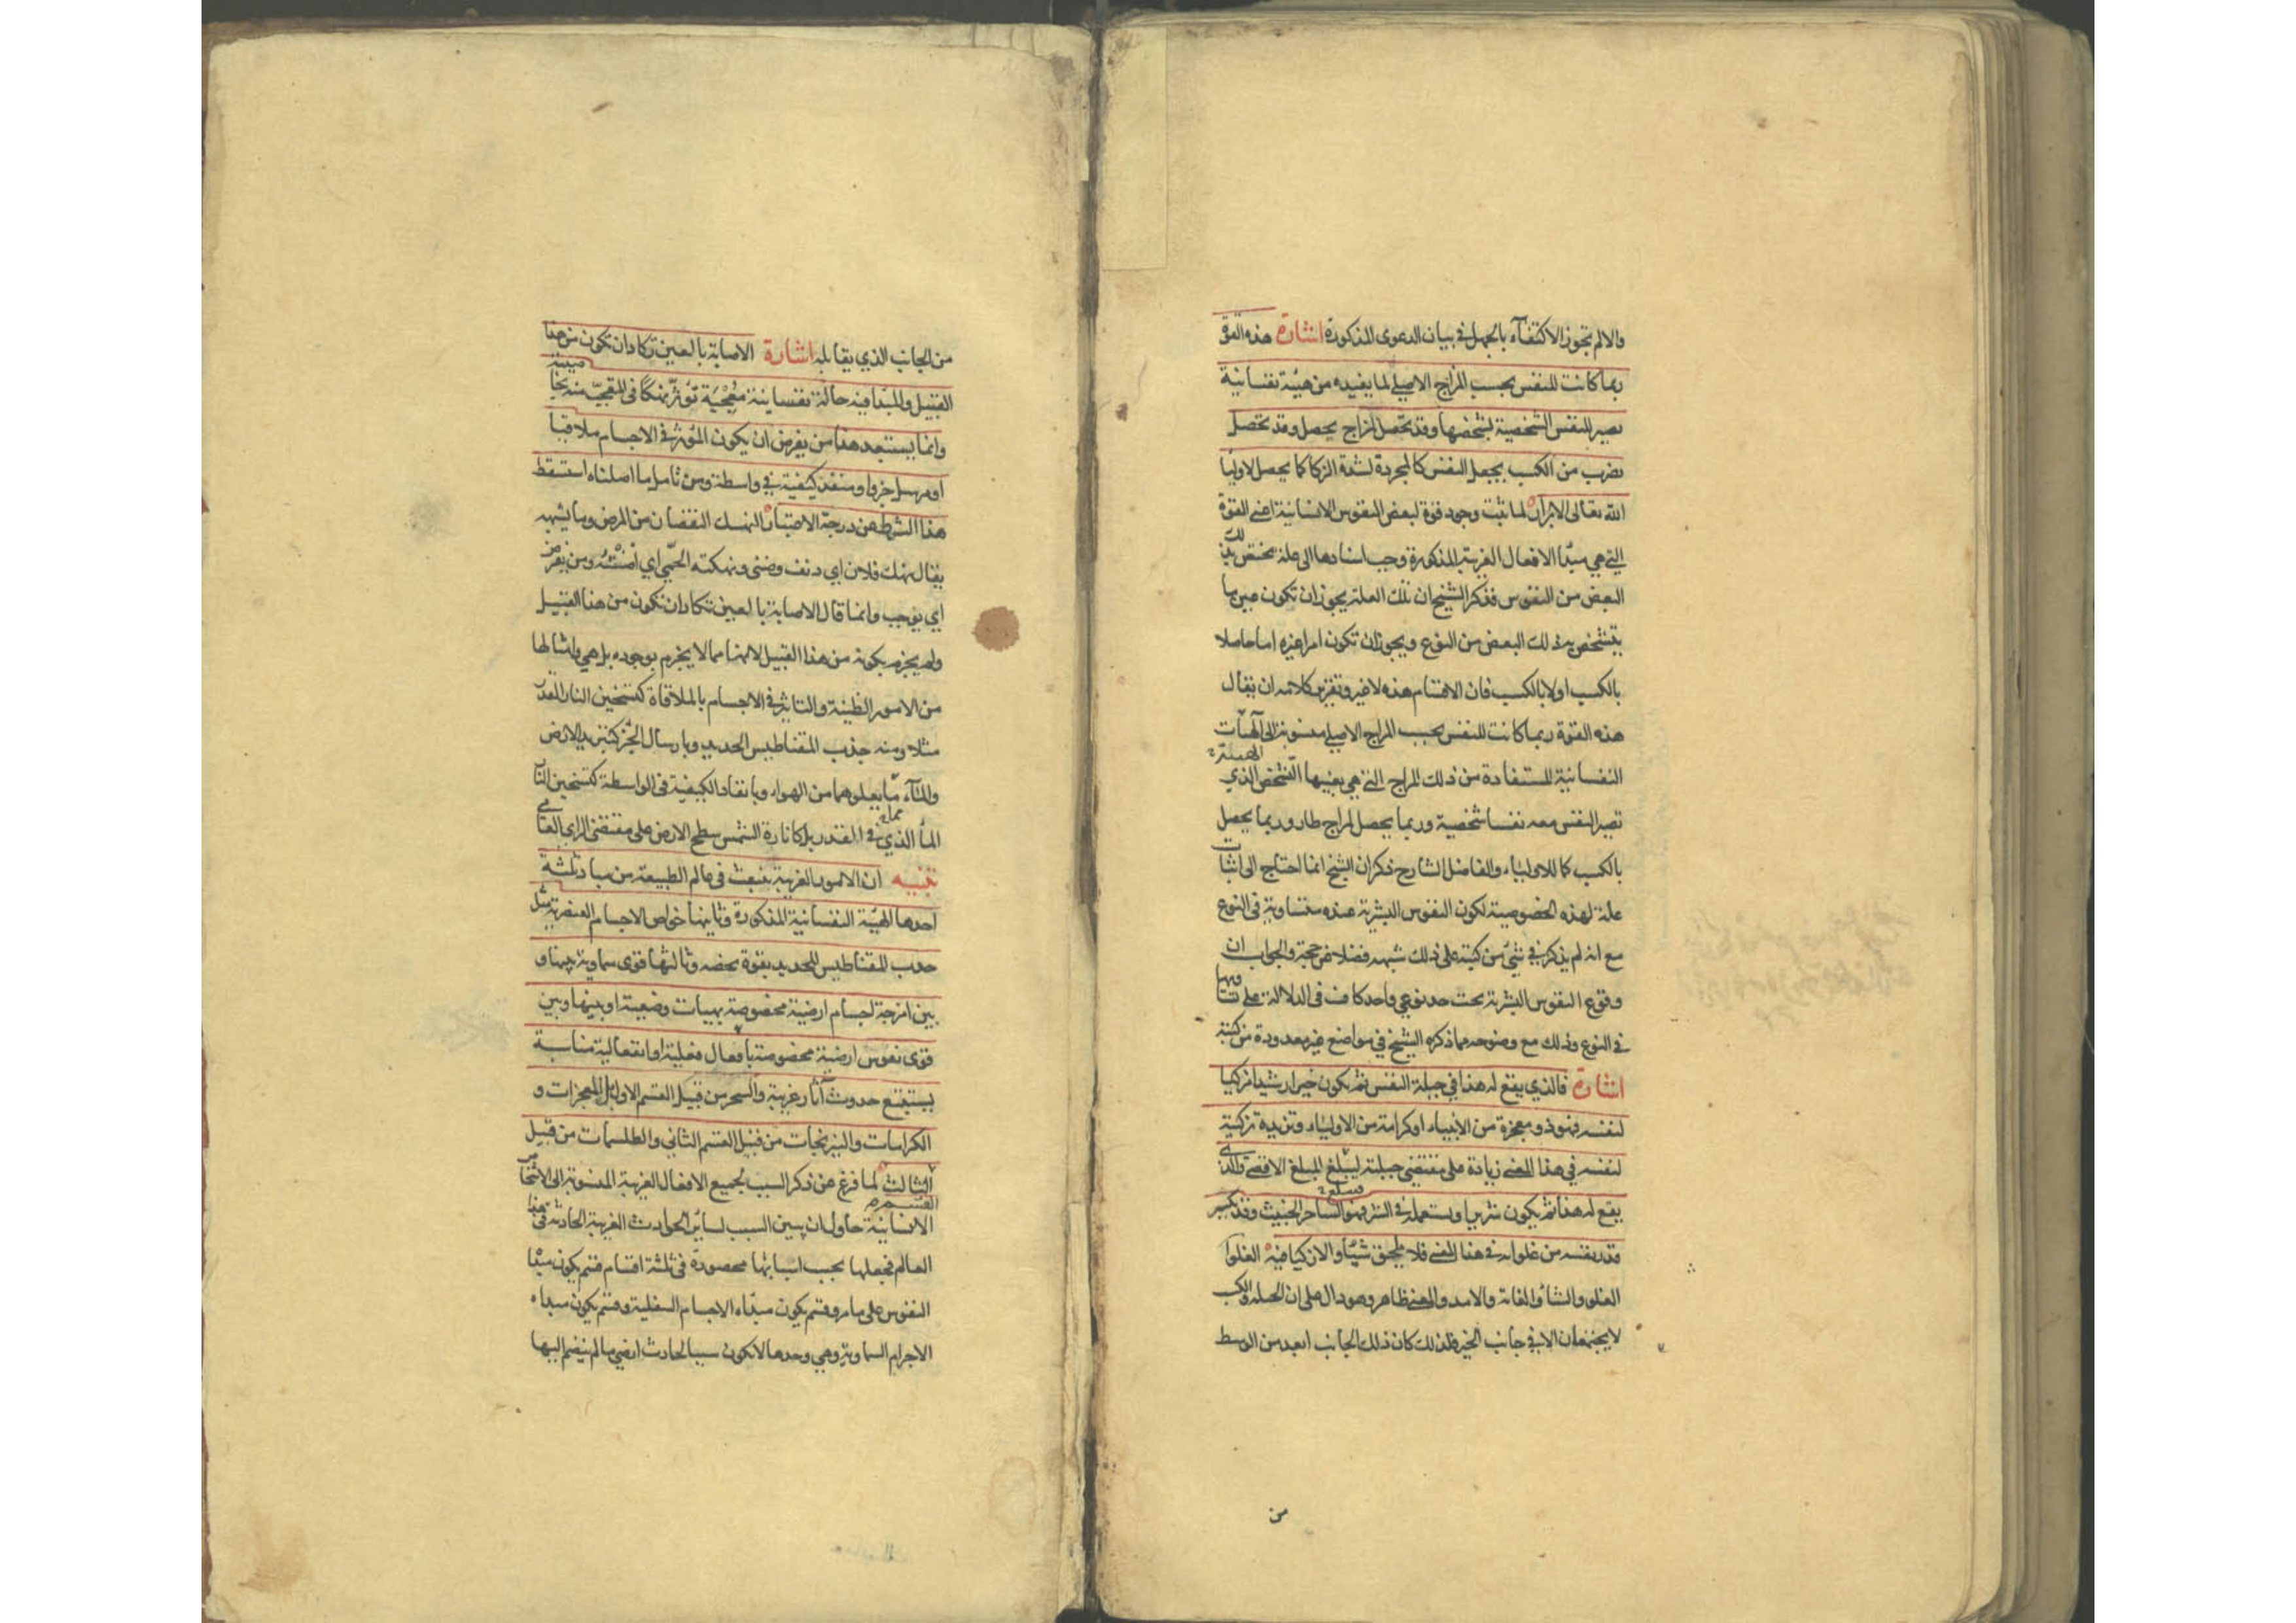 والالم تجوز الاكتفآء بالجهل في بيان الدعوى المذكورة اشارة هذه القوة
ربما كانت للنفس بحسب المزاج الاصلي لما يفيده من هيئة نفسانية
تصير للنفس الشخصية لشخصها وقد تحصل لمزاج يحصل وقد تحصل
بضرب من الكسب يجعل النفس كالمجردة لشدة الزكا كما يحصل لاوليا
الله تعالى الابرار لما ثبت وجود قوة لبعض النفوس الانسانية اعني القوة
التي هي مبدأ الافعال الغريبة المذكورة وجب اسنادها الى علة تختص بذلك
البعض من النفوس فذكر الشيخ ان تلك العلة يجوز ان تكون عين ما
يتشخص به ذلك البعض من النوع ويجوز ان تكون امرا غيره اما حاصلا
بالكسب اولا بالكسب فان الاقسام هذه لا غير وتقرير كلامه ان يقال
هذه القوة ربما كانت للنفس بحسب المزاج الاصلي منسوبة الى الهيآت
الهيئة
النفسانية المستفادة من ذلك المزاج التي هي بعينها التشخص الذي
تصير النفس معه نفسا شخصية وربما يحصل لمزاج طار وربما يحصل
بالكسب كما للاولياء والفاضل الشارح ذكر ان الشيخ انما احتاج الى اثبات
علة لهذه الخصوصية لكون النفوس البشرية عنده متساوية في النوع
مع انه لم يذكر في شيء من كتبه على ذلك شبهه فضلا عن حجة والجواب ان
وقوع النفوس البشرية تحت حد نوعي واحد كاف في الدلالة على تساويها
في النوع وذلك مع وضوحه مما ذكره الشيخ في مواضع غير معدودة من كتبه
اشارة فالذي يقع له هذا في جبلة النفس ثم يكون خيرا رشيدا مزكيا
لنفسه فهو ذو معجزة من الانبياء او كرامة من الاولياء وتزيده تزكيته
لنفسه في هذا المعنى زيادة على مقتضى جبلته ليبلغ المبلغ الاقصى والذي
يقع له هذا ثم يكون شريرا ويستعمله في الشر فهو الساحر الخبيث وقد يكسر
قدر نفسه من غلوائه في هذا المعنى فلا يلحق شيئا والازكياء فيه الغلوا
الغلو والشأو الغاية والامد والمعنى ظاهر وهو دال على ان الجبلة والكسب
لا يجتمعان الا في جانب الخير ولذلك كان ذلك الجانب ابعد من الوسط
من
من الجانب الذي يقابله اشارة الاصابة بالعين تكاد ان تكون من هذا
القبيل والمبدأ فيه حالة نفسانية معجبة تؤثر نهكا في المتعجب منه بخاصيتة
وانما يستبعد هذا من يفرض ان يكون المؤثر في الاجسام ملاقيا
او مرسل جزو او منفذ كيفية في واسطة ومن تامل ما اصلناه استسقط
هذا الشرط عن درجة الاعتبار النهك النقصان من المرض وما يشبهه
يقال نهك فلان اي دنف وضني ونهكته الحمى اي اضنته ومن يفرض
اي يوجب وانما قال الاصابة بالعين تكاد ان تكون من هذا القبيل
ولم يجزم بكونه من هذا القبيل لانها مما لا يجزم بوجوده بل هي وامثالها
من الامور الظنية والتاثير في الاجسام بالملاقاة كتسخين النار القدر
مثلا ومنه جذب المقناطيس الحديد وبارسال الجزء كتبريد الارض
والمآء ما يعلوهما من الهواء وبانفاذ الكيفية في الواسطة كتسخين النار
المأ الذي في القدر بل كانارة الشمس سطح الارض على مقتضى الراي العامي
تنبيه ان الامور الغريبة تنبعث في عالم الطبيعة من مباد ثلثة
احدها الهيئة النفسانية المذكورة وثانيها خواص الاجسام العنصرية مثل
جذب المقناطيس للحديد بقوة تخصه وثالثها قوى سماوية بينها و
بين امزجة اجسام ارضية مخصوصة بهيات وضعية او بينها وبين
قوى نفوس ارضية مخصوصة بافعال فعلية او انفعالية مناسبة
يستتبع حدوث آثار غريبة والسحر من قبيل القسم الاول بل المعجزات و
الكرامات والنيرنجات من قبيل القسم الثاني والطلسمات من قبيل
القسم
الثالث لما فرغ عن ذكر السبب لجميع الافعال الغريبة المنسوبة الى الاشخاص
الانسانية حاول ان يبين السبب لسائر الحوادث الغريبة الحادثة في هذا
العالم فجعلها بحسب اسبابها محصورة في ثلثة اقسام قسم يكون مبدأه
النفوس على ما مر وقسم يكون مبدأه الاجسام السفلية وقسم يكون مبدأه
الاجرام السماوية وهي وحدها لا تكون سببا لحادث ارضي ما لم ينضم اليها